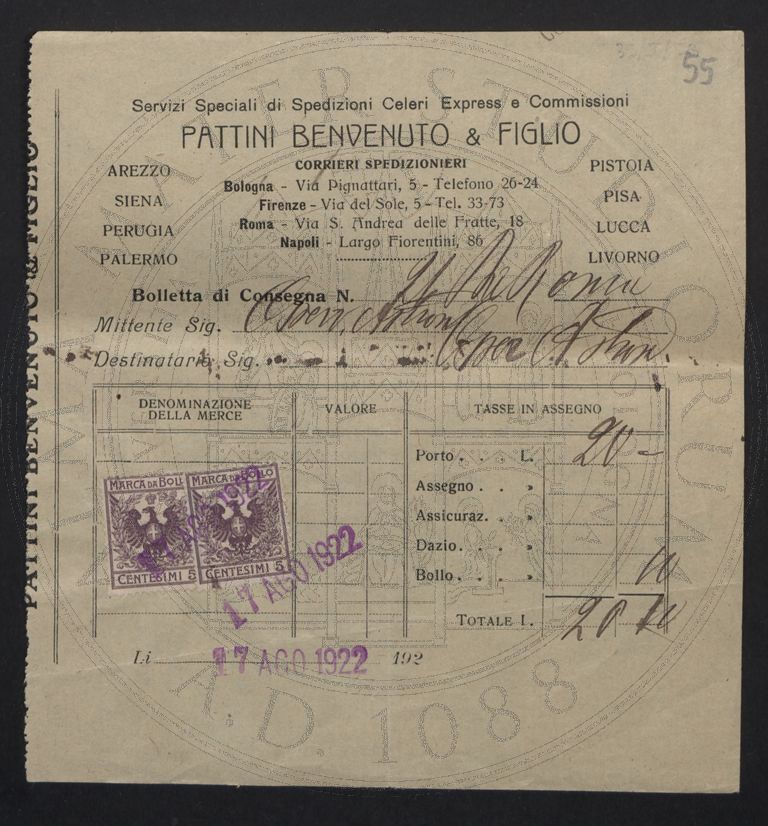 55
Servizi Speciali di Spedizioni Celeri Express e Commissioni
PATTINI BENVENUTO & FIGLIO
CORRIERI SPEDIZIONIERI
AREZZO
SIENA
PERUGIA
PALERMO
Bologna - Via Pignattari, 5 - Telefono 26-24
Firenze - Via del Sole, 5 - Tel. 33-73
Roma - Via S. Andrea delle Fratte, 18
Napoli - Largo Fiorentini, 86
PISTOIA
PISA
LUCCA
LIVORNO
Bolletta di Consegna N. Roma
Mittente Sig.
Destinatario Sig.
DENOMINAZIONE DELLA MERCE
VALORE
TASSE IN ASSEGNO
Porto . . . L. 20 -
Assegno . . »
Assicuraz. . »
Dazio. . . »
Bollo. . . » 10
TOTALE L. 20 10
MARCA DA BOLLO
CENTESIMI 5
MARCA DA BOLLO
CENTESIMI 5
17 AGO 1922
17 AGO 1922
Li 17 AGO 1922 192
PATTINI BENVENUTO & FIGLIO
ALMA MATER STUDIORUM
A.D. 1088